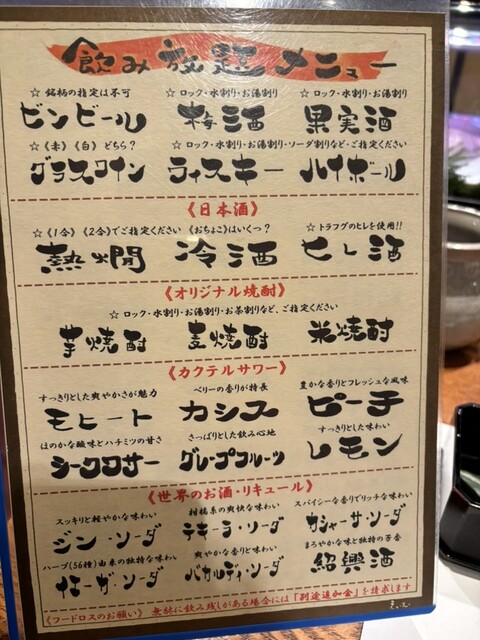 飲み放題メニュー
☆銘柄の指定は不可 ☆ロック・水割り・お湯割り ☆ロック・水割り・お湯割り
ビンビール 梅酒 果実酒
☆《赤》《白》どちら? ☆ロック・水割り・お湯割り・ソーダ割りなど・ご指定ください
グラスワイン ウィスキー ハイボール
《日本酒》
☆《1合》《2合》でご指定ください 《おちょこ》はいくつ? ☆トラフグのヒレを使用!!
熱燗 冷酒 ヒレ酒
《オリジナル焼酎》
☆ロック・水割り・お湯割り・お茶割りなど、ご指定ください
芋焼酎 麦焼酎 米焼酎
《カクテルサワー》
すっきりとした爽やかさが魅力 ベリーの香りが特長 豊かな香りとフレッシュな風味
モヒート カシス ピーチ
ほのかな酸味とハチミツの甘さ さっぱりとした飲み心地 すっきりした味わい
シークワサー グレープフルーツ レモン
《世界のお酒・リキュール》
スッキリと軽やかな味わい 柑橘系の爽快な味わい スパイシーな香りでリッチな味わい
ジン・ソーダ テキーラ・ソーダ カシャーサ・ソーダ
ハーブ(56種)由来の独特な味わい 爽やかな香りと味わい まろやかな味と独特の芳香
イエーガ・ソーダ バカルディ・ソーダ 紹興酒
《フードロスのお願い》 無駄に飲み残しがある場合には「別途追加金」を請求します